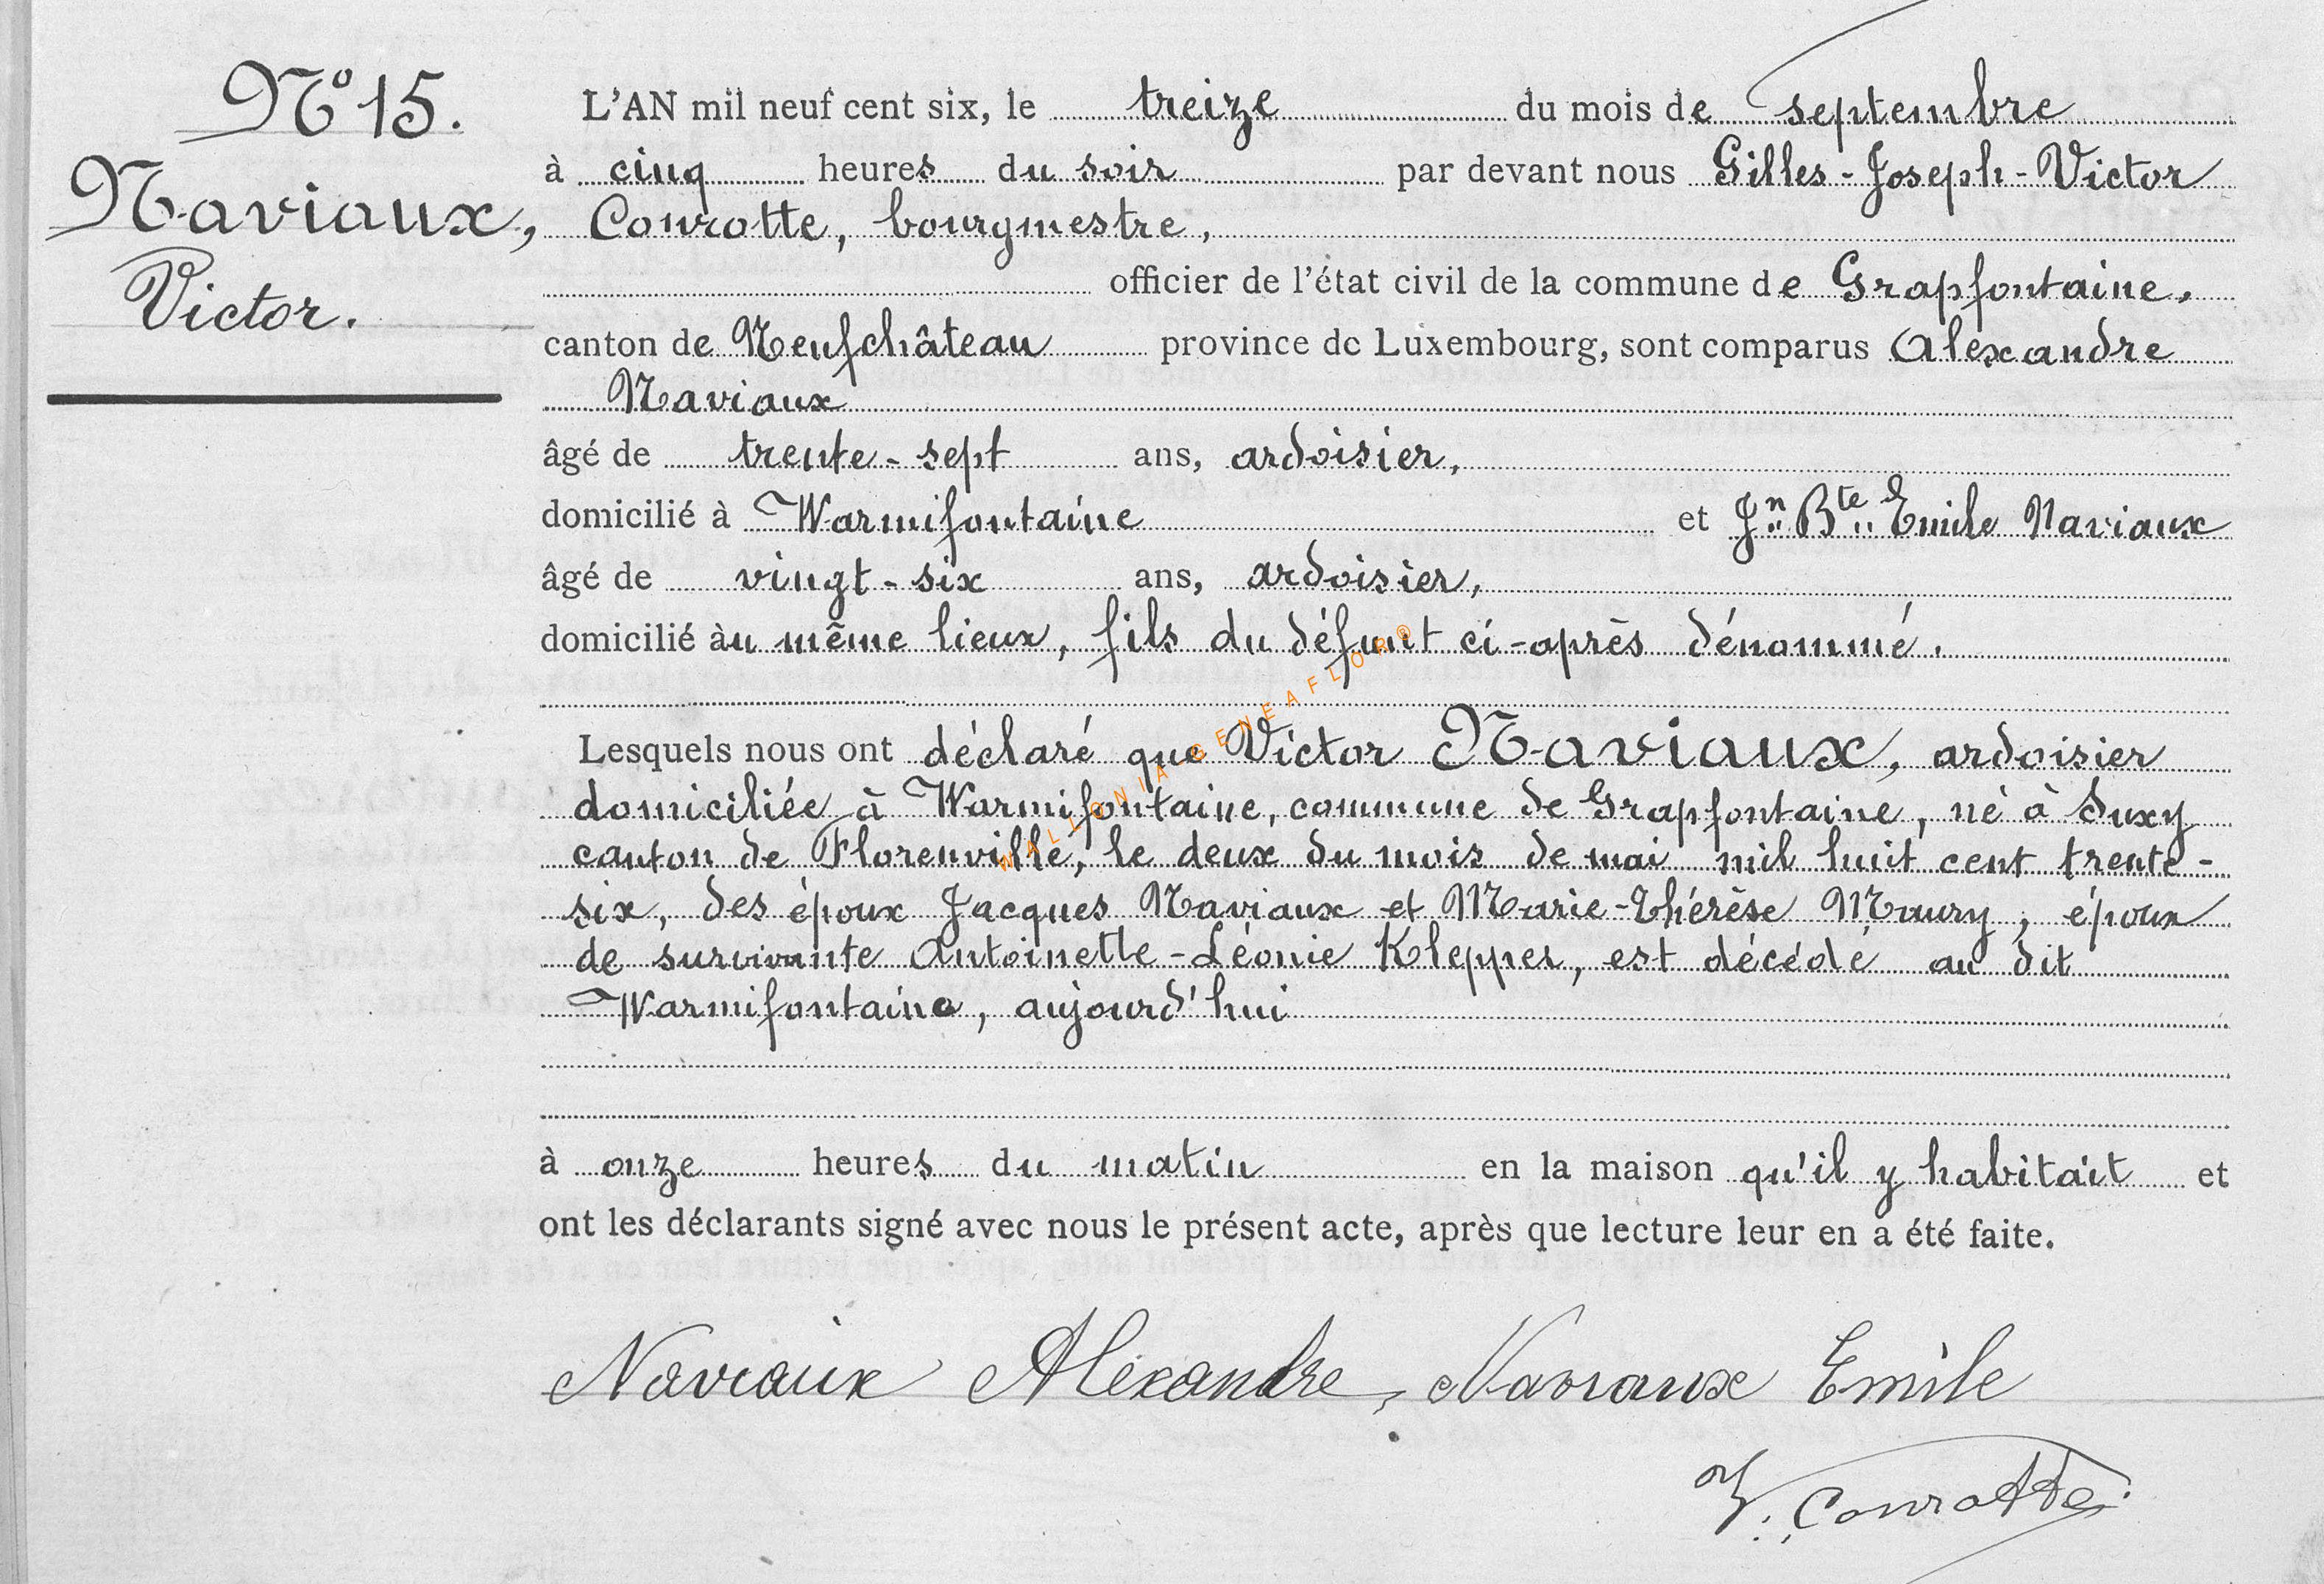 N° 15.
Naviaux,
Victor.
L'AN mil neuf cent six, le treize du mois de septembre
à cinq heures du soir par devant nous Gilles-Joseph-Victor
Conrotte, bourgmestre,
officier de l'état civil de la commune de Grapfontaine,
canton de Neufchâteau province de Luxembourg, sont comparus Alexandre
Naviaux
âgé de trente-sept ans, ardoisier,
domicilié à Warmifontaine et Jn Bte Emile Naviaux
âgé de vingt-six ans, ardoisier,
domicilié àu même lieux, fils du défunt ci-après dénommé.
Lesquels nous ont déclaré que Victor Naviaux, ardoisier
domiciliée à Warmifontaine, commune de Grapfontaine, né à Suxy
canton de Florenville, le deux du mois de mai mil huit cent trente-
six, des époux Jacques Naviaux et Marie-Thérèse Maury, époux
de survivante Antoinette-Léonie Klepper, est décédé au dit
Warmifontaine, aujourd'hui
à onze heures du matin en la maison qu'il y habitait et
ont les déclarants signé avec nous le présent acte, après que lecture leur en a été faite.
Naviaux Alexandre, Naviaux Emile
V. Conrotte
WALLONIA-GENEAFLOR®